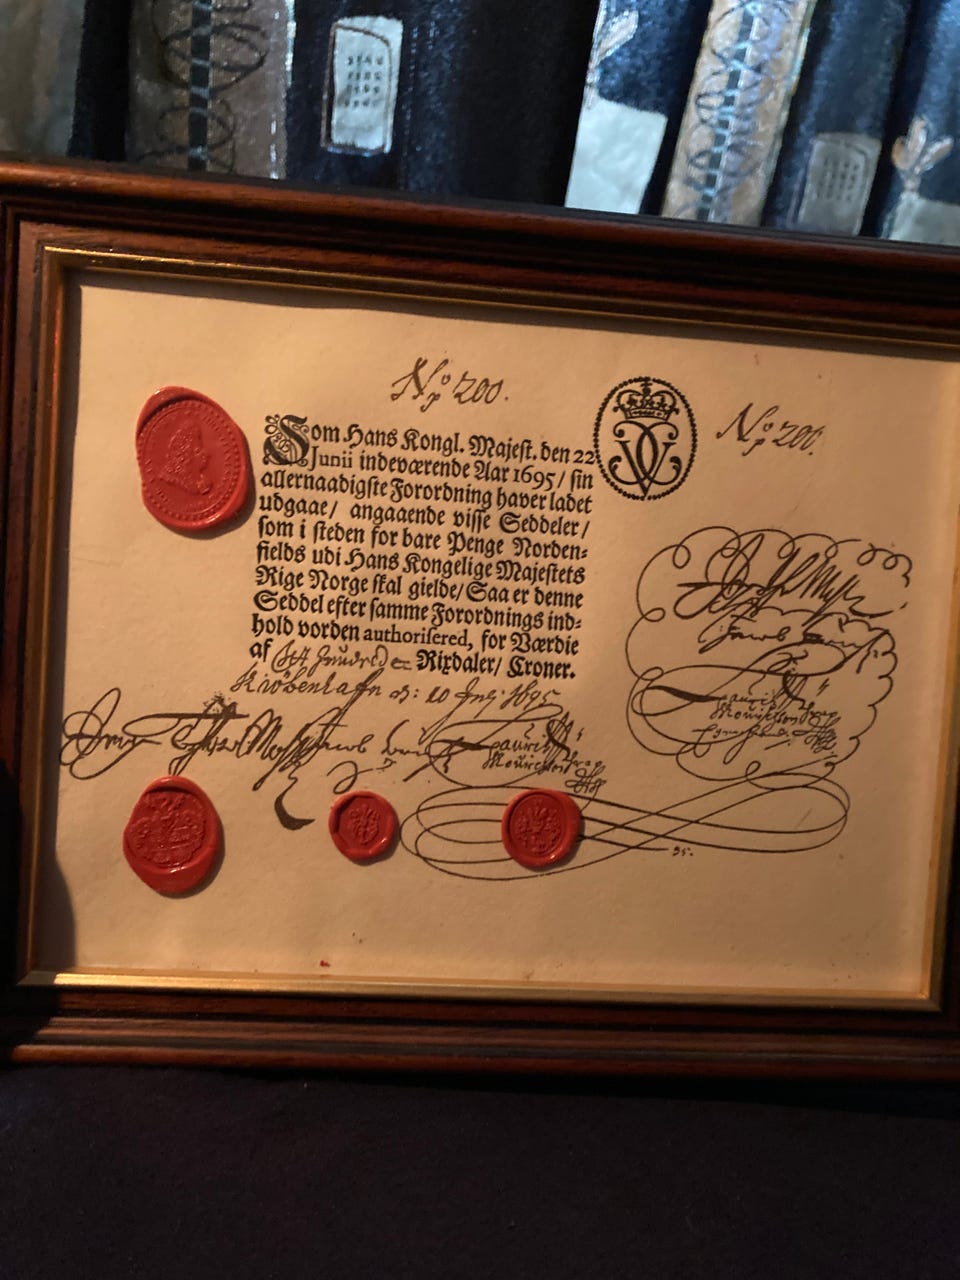 No 200.
No 200.
Som Hans Kongl. Majest. den 22
Junii indeværende Aar 1695/ sin
allernaadigste Forordning haver ladet
udgaae/ angaaende visse Seddeler/
som i steden for bare Penge Norden-
fields udi Hans Kongelige Majestets
Rige Norge skal gielde/ Saa er denne
Seddel efter samme Forordnings ind-
hold vorden authorisered, for Værdie
af Rixdaler/ Croner.
Kiöbenhafn d: 10 Julj 1695
95.